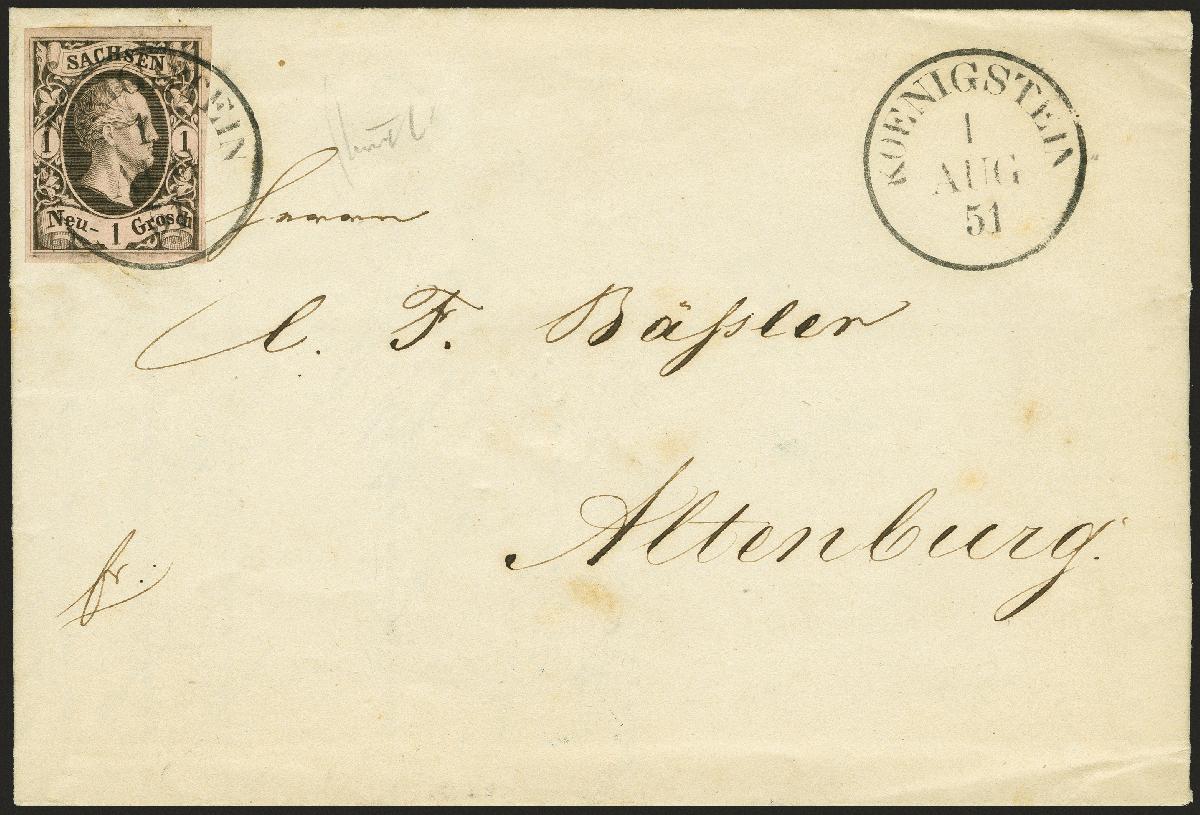 SACHSEN
1 1
Neu- 1 Grosch
EIN
1
KOENIGSTEIN
1
AUG
51
Herrn
C. F. Bäſsler
Altenburg.
fr.: